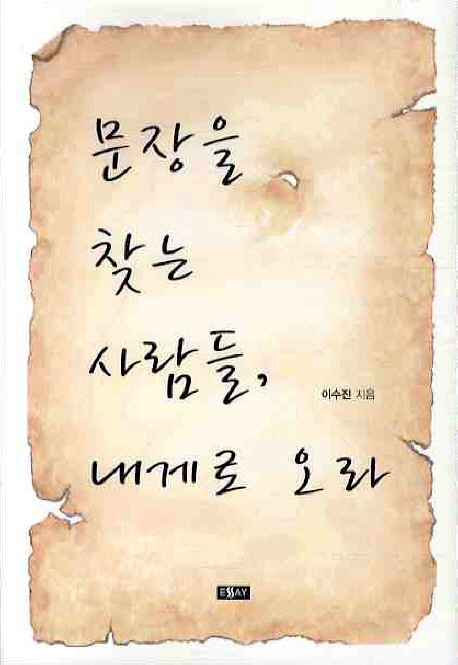 문장을
찾는
사람들,
이수진 지음
내게로 오라
ESSAY